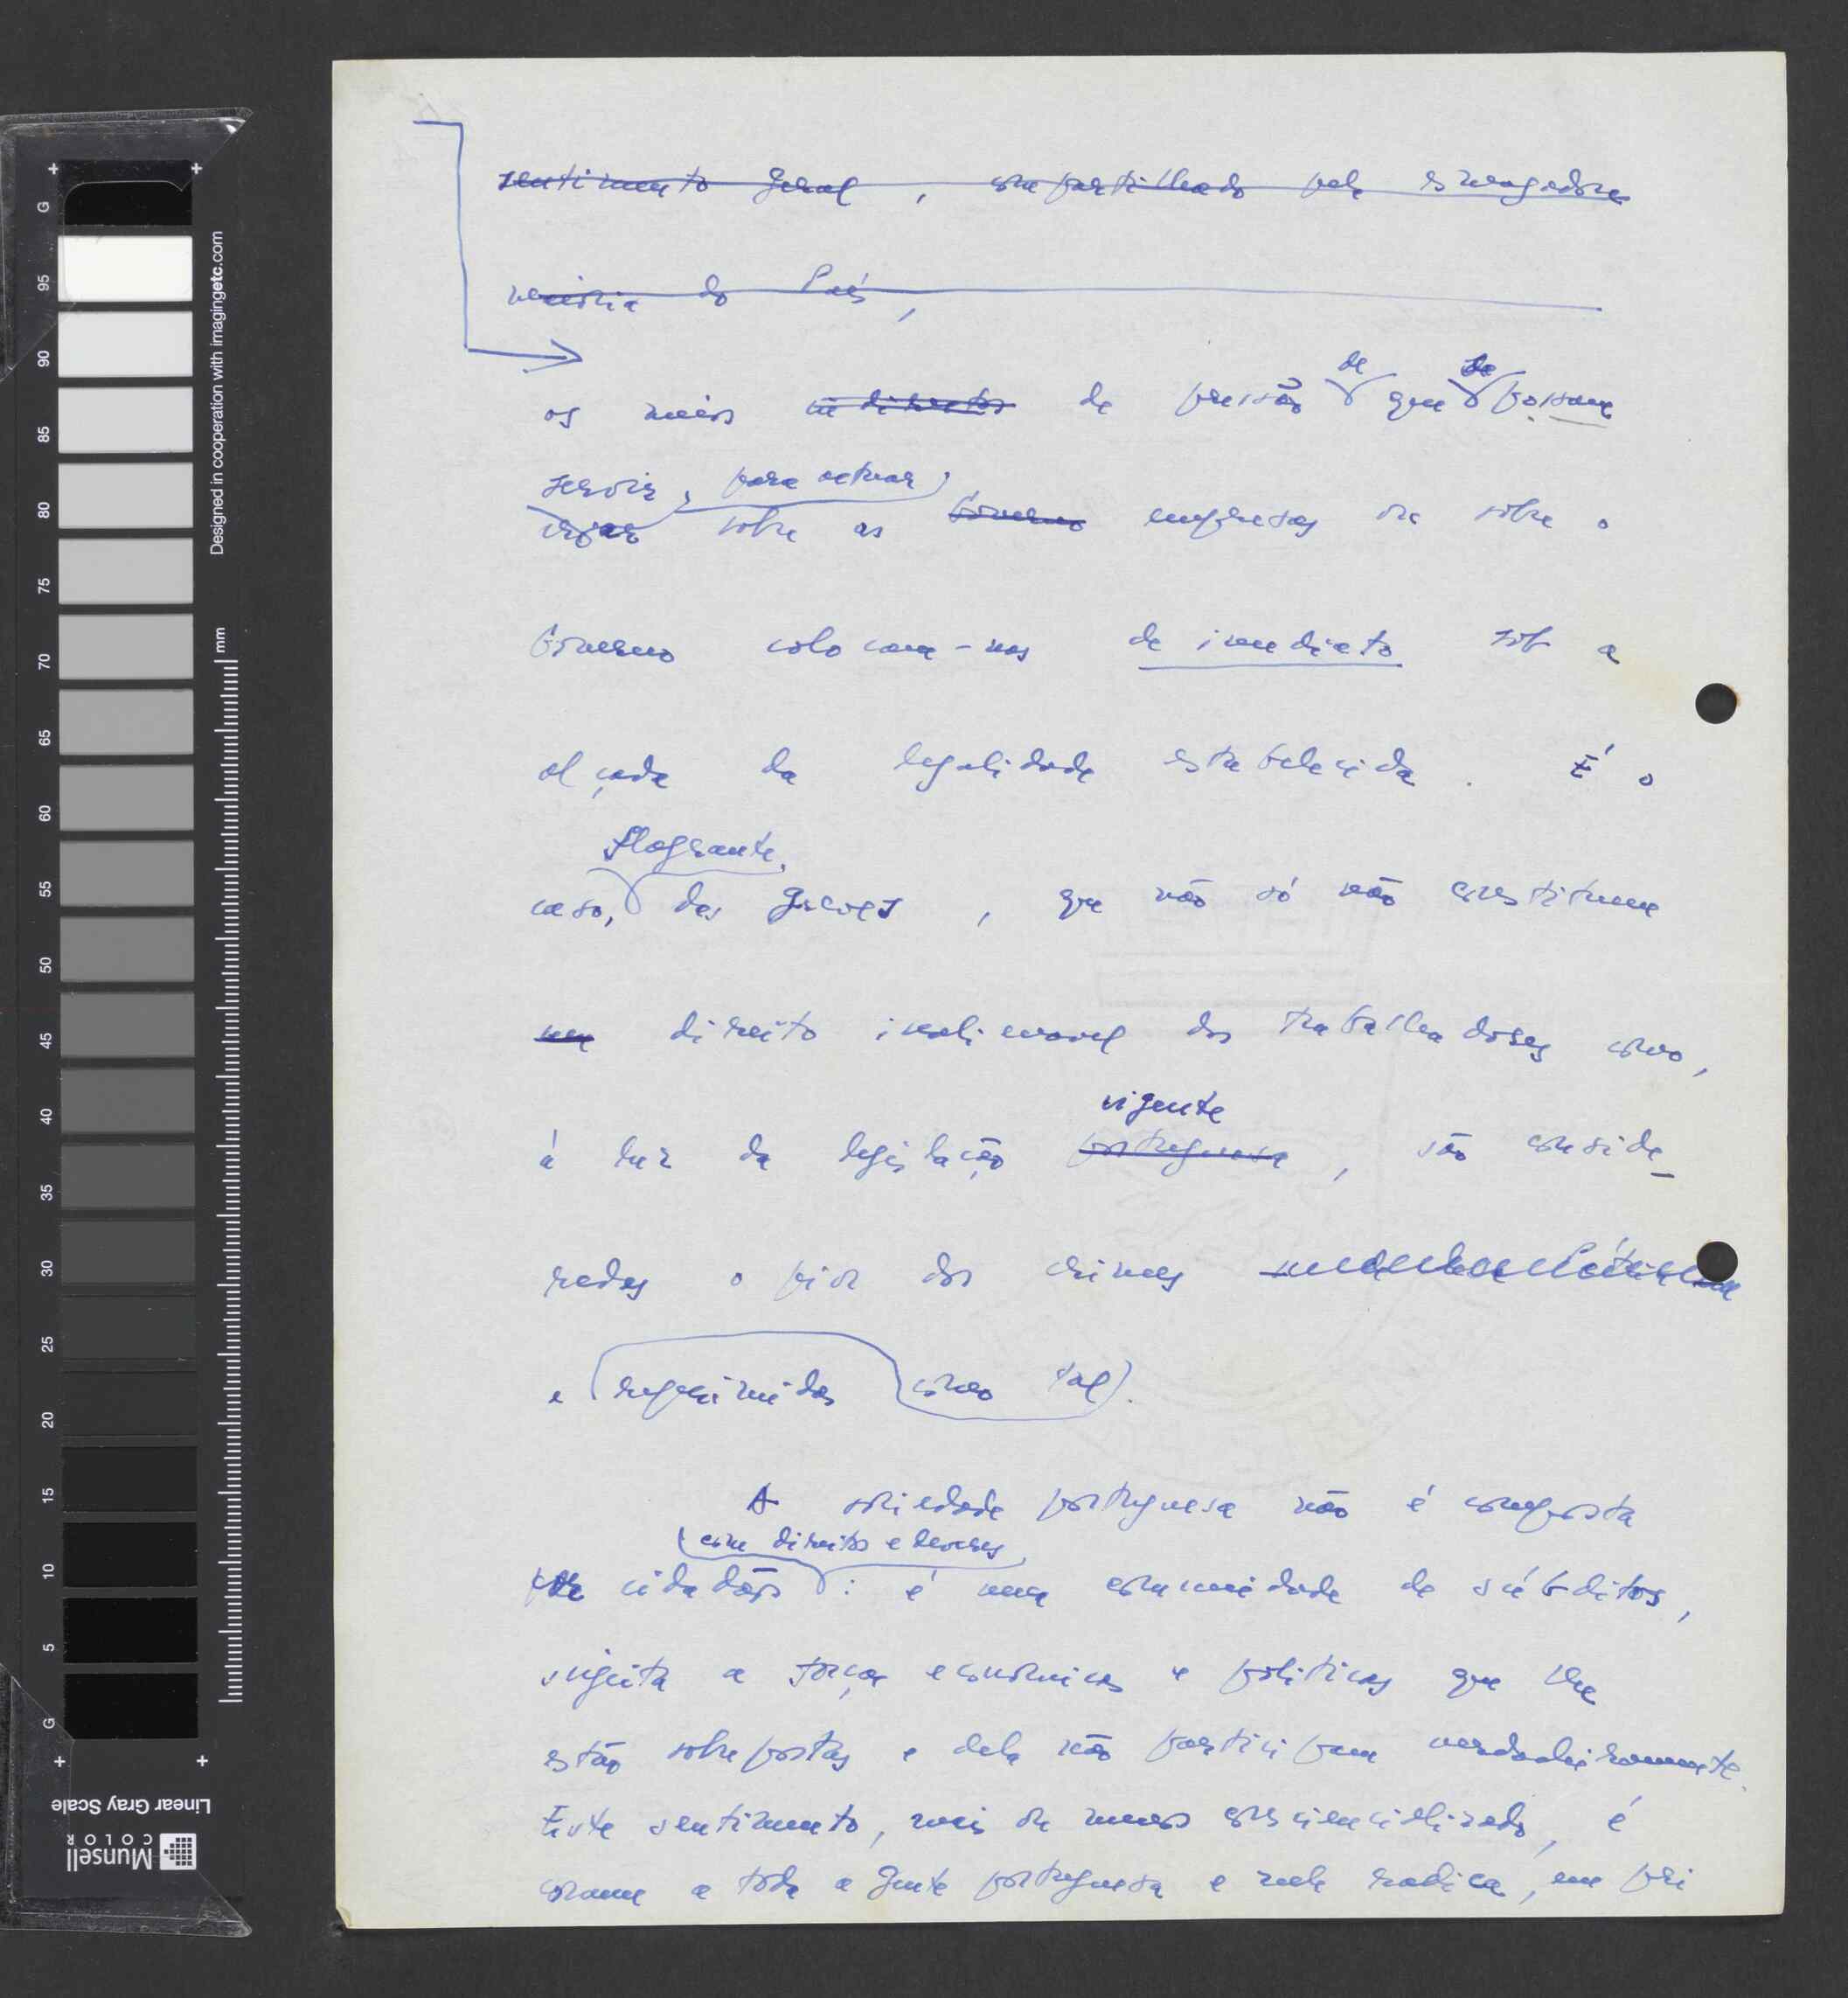 sentimento geral, compartilhado pela esmagadora
maioria do País,
de de
os meios indirectos de pressão que possam
servir, para actuar,
sobre as Governo empresas ou sobre o
Governo colocam-nos de imediato sob a
alçada da legalidade estabelecida. É o
flagrante,
caso, das greves, que não só não constituem
um direito inalienavel dos trabalhadores como,
vigente
à luz da legislação portuguesa, são conside-
radas o pior dos crimes
e reprimidas como tal.
A sociedade portuguesa não é composta
com direitos e deveres
por cidadãos : é uma comunidade de súbditos,
sujeita a forças económicas e politicas que lhe
estão sobrepostas e dela não participam verdadeiramente.
Este sentimento, mais ou menos consciencializado, é
comum a toda a gente portuguesa e nele radica, em pri
Designed in cooperation with imagingetc.com
mm
G 95 90 85 80 75 70 65 60 55 50 45 40 35 30 25 20 15 10 5 G
Linear Gray Scale
Munsell
COLOR